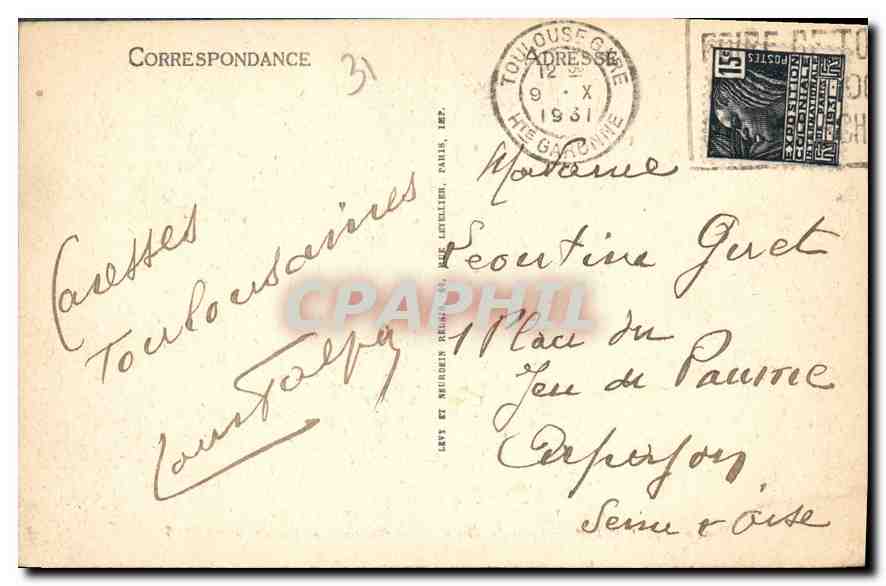 CORRESPONDANCE
31
ADRESSE
TOULOUSE GARE
12
9 · X
1931
HTE GARONNE
FOIRE DE TO
15c
POSTES
EXPOSITION
COLONIALE
INTERNATIONALE
DE PARIS
1931
RF
Caresses
Toulousaines
Louis
LEVY ET NEURDEIN RÉUNIS, 44, RUE LETELLIER, PARIS, IMP.
Madame
Léontine Guret
1 Place du
Jeu de Paume
Arpajon
Seine & Oise
CPAPHIL